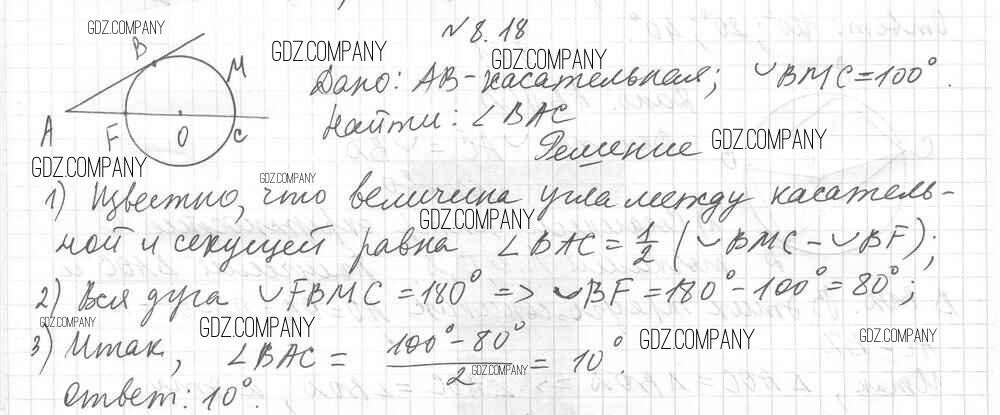 N 8.18
GDZ.COMPANY
B
M
A
F
O
C
GDZ.COMPANY
GDZ.COMPANY
Дано: AB - касательная; ◡BMC = 100°.
Найти: ∠BAC
Решение
GDZ.COMPANY
GDZ.COMPANY
GDZ.COMPANY
1) Известно, что величина угла между касатель-
GDZ.COMPANY
ной и секущей равна ∠BAC = 1/2 (◡BMC - ◡BF);
2) Вся дуга ◡FBMC = 180° => ◡BF = 180° - 100° = 80°;
GDZ.COMPANY
GDZ.COMPANY
GDZ.COMPANY
GDZ.COMPANY
3) Итак, ∠BAC = (100° - 80°)/2 = 10°.
GDZ.COMPANY
Ответ: 10°.